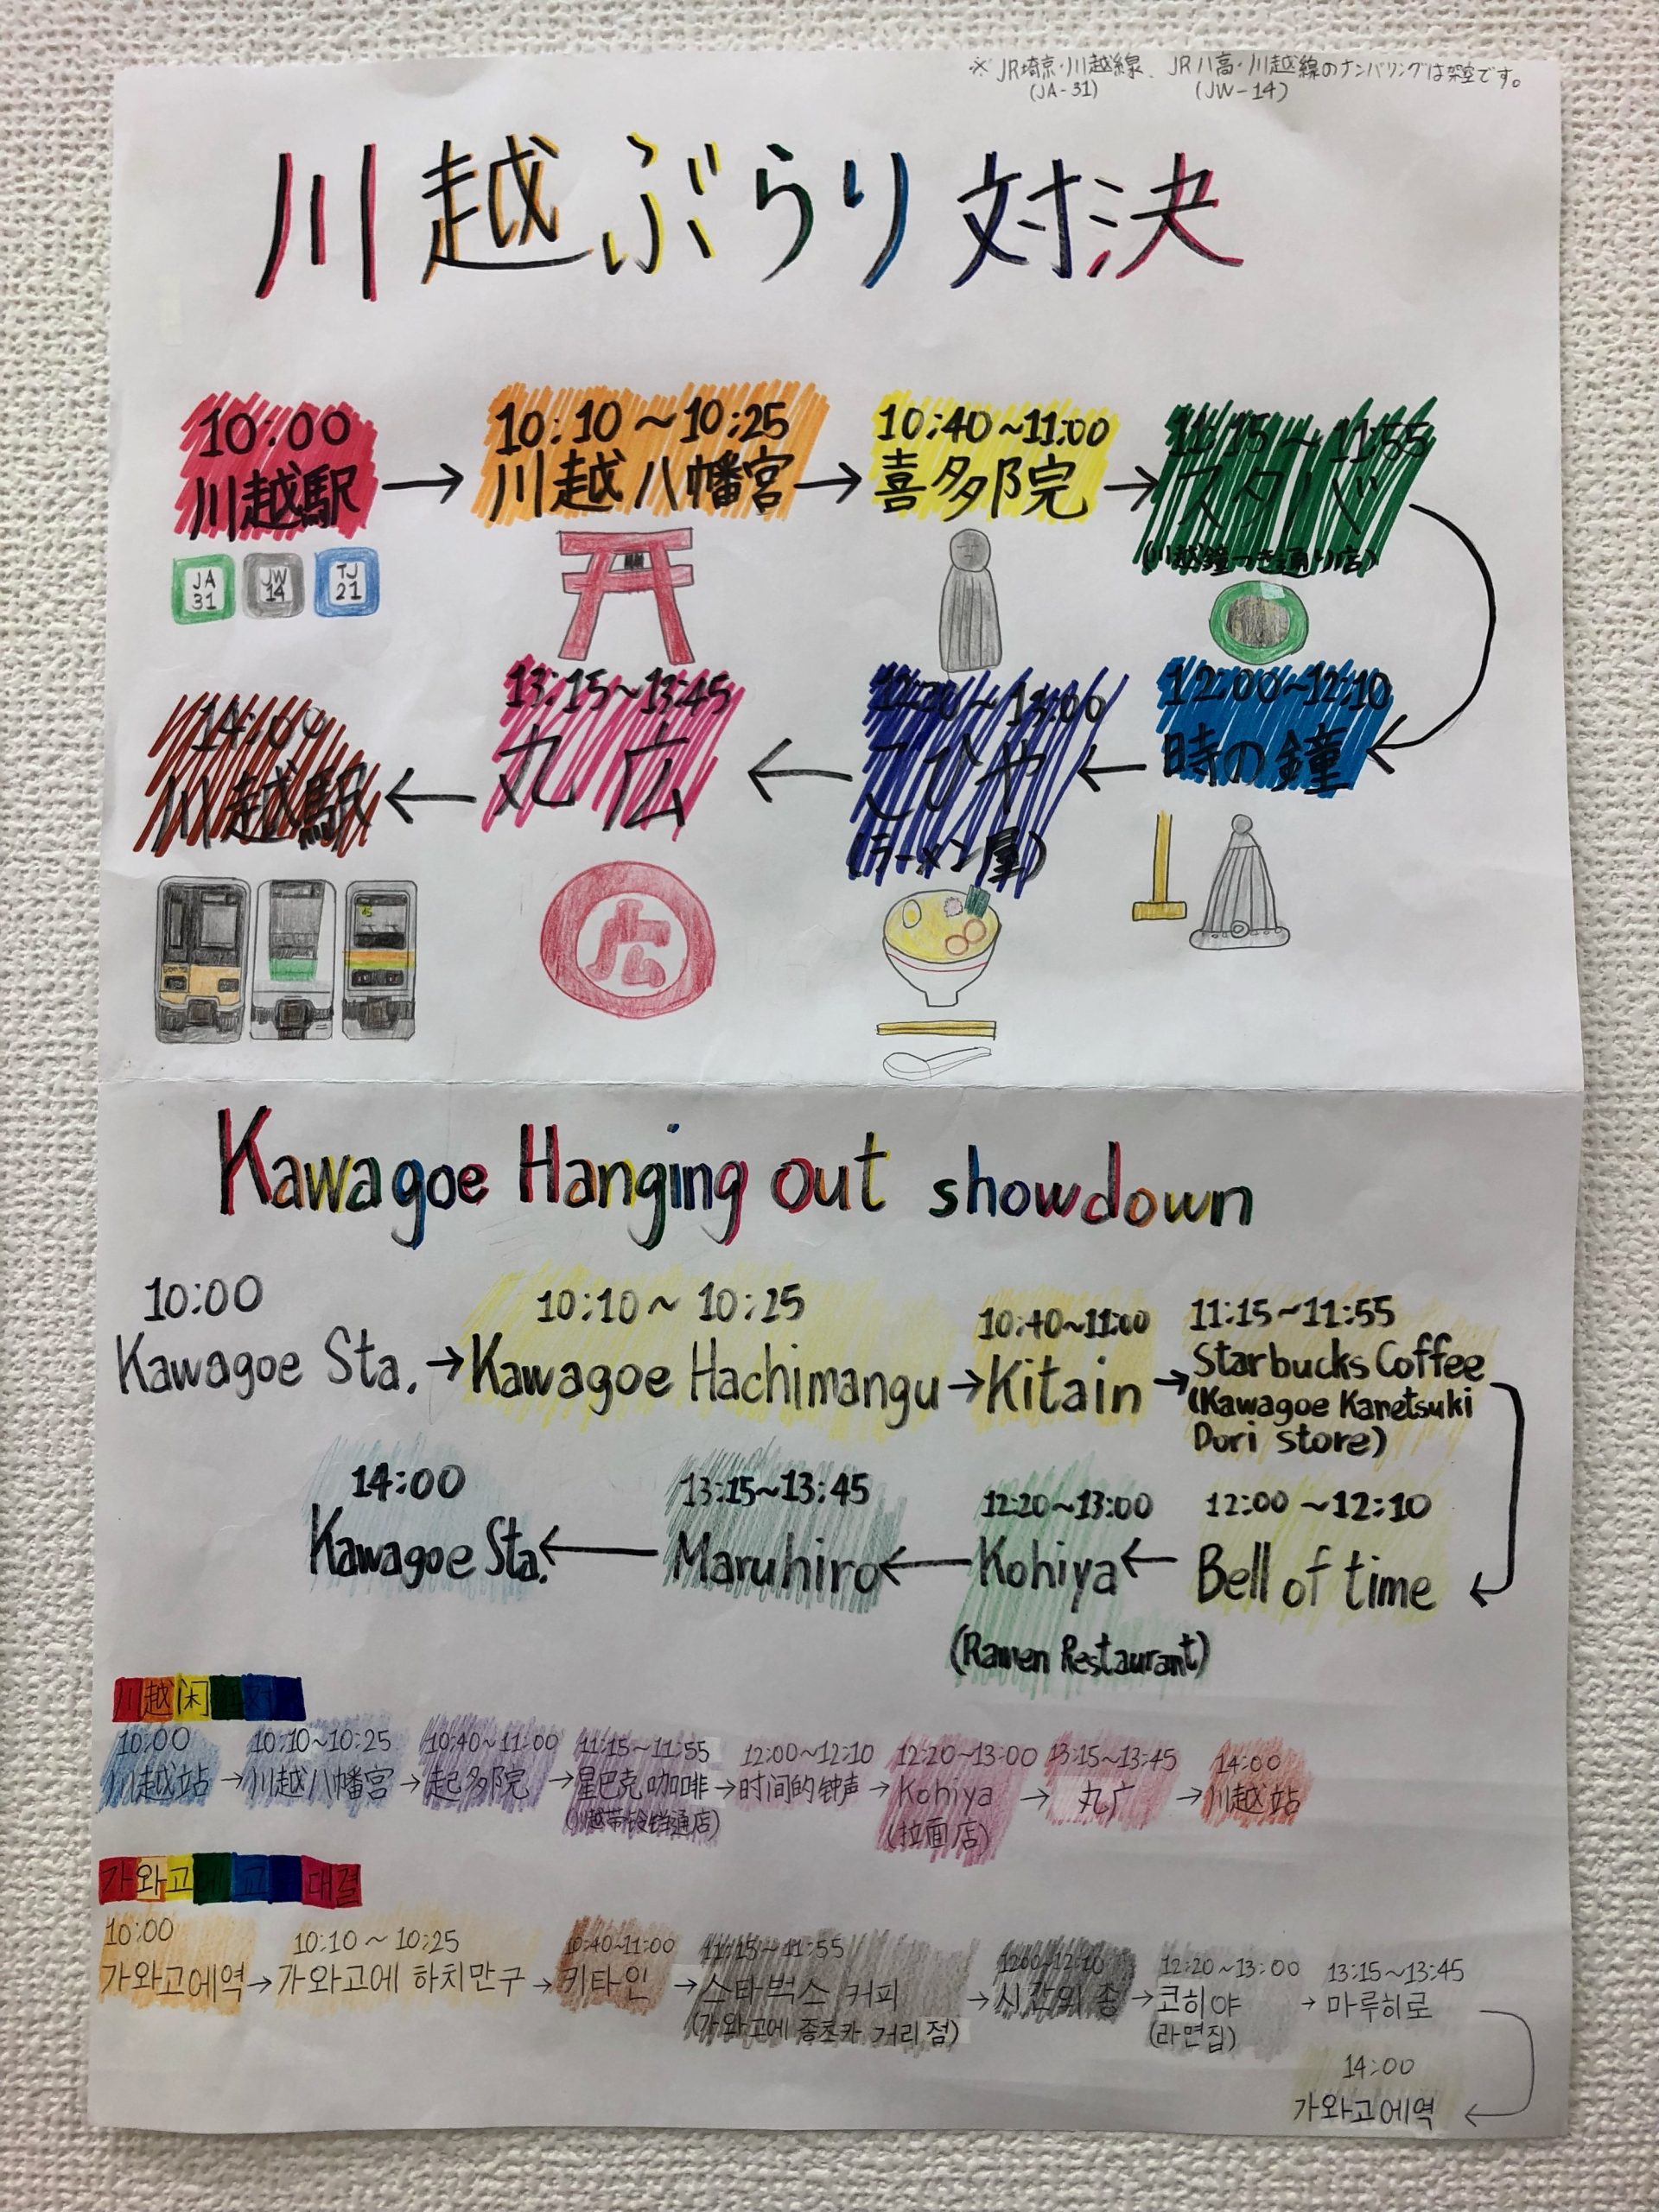 ※JR埼京・川越線、JR八高・川越線のナンバリングは架空です。
(JA-31) (JW-14)
川越ぶらり対決
10:00
川越駅
→
10:10～10:25
川越八幡宮
→
10:40～11:00
喜多院
→
11:15～11:55
スタバ
(川越鐘つき通り店)
JA 31
JW 14
TJ 21
12:00～12:10
時の鐘
←
12:20～13:00
こひや
(ラーメン屋)
←
13:15～13:45
丸広
←
14:00
川越駅
広
Kawagoe Hanging out showdown
10:00
Kawagoe Sta.
→
10:10～10:25
Kawagoe Hachimangu
→
10:40～11:00
Kitain
→
11:15～11:55
Starbucks Coffee
(Kawagoe Kanetsuki
Dori store)
12:00～12:10
Bell of time
←
12:20～13:00
Kohiya
(Ramen Restaurant)
←
13:15～13:45
Maruhiro
←
14:00
Kawagoe Sta.
川越闲 对
10:00 10:10～10:25 10:40～11:00 11:15～11:55 12:00～12:10 12:20～13:00 13:15～13:45 14:00
川越站→川越八幡宮→起多院→星巴克咖啡→时间的钟声→Kohiya→丸广→川越站
(川越带铃铛通店) (拉面店)
가와고에 교 대결
10:00 10:10～10:25 10:40～11:00 11:15～11:55 12:00～12:10 12:20～13:00 13:15～13:45
가와고에역→가와고에 하치만구→키타인→스타벅스 커피→시간의 종→코히야→마루히로
(가와고에 종츠카 거리점) (라면집)
14:00
가와고에역